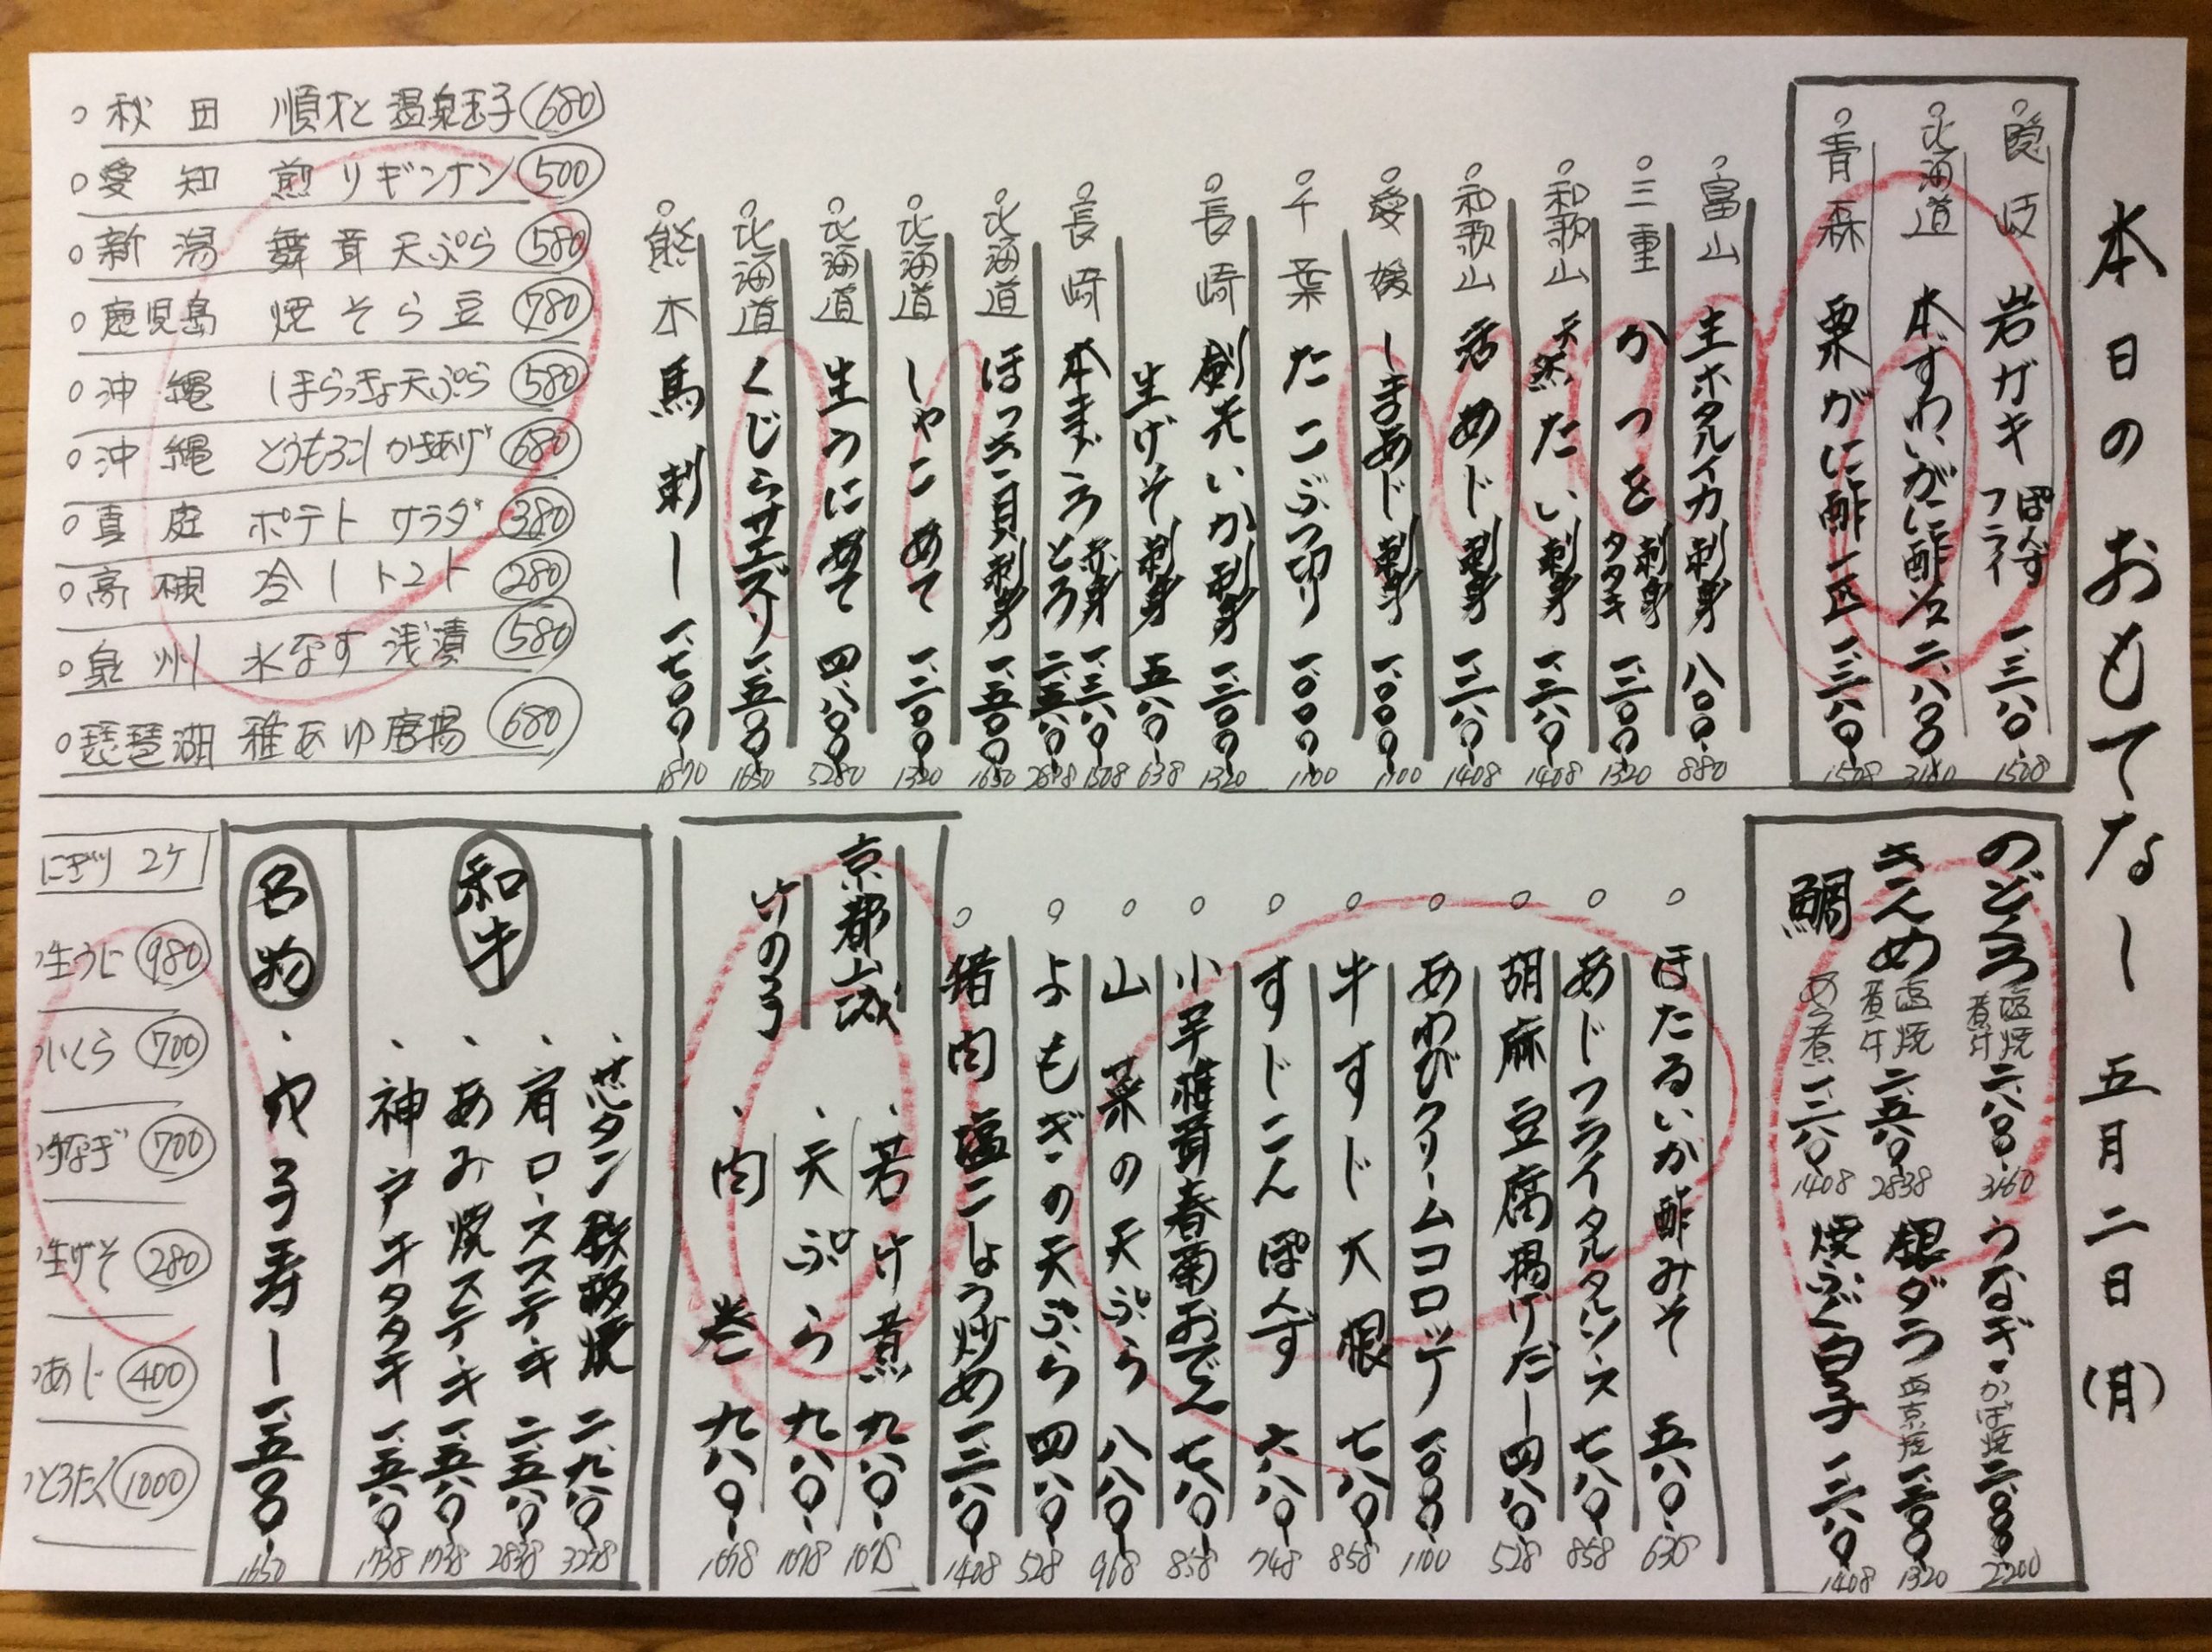 本日のおもてなし 五月二日(月)
隠岐 岩ガキ ぽんず フライ 一、三八〇 1508
北海道 本ずわいがに酢 二、八八〇
青森 栗がに酢 一匹 一、三八〇 1508
富山 生ホタルイカ刺身 八〇〇 880
三重 かつを 刺身 タタキ 一、二〇〇 1320
和歌山 天然たい刺身 一、二八〇 1408
和歌山 活めじ刺身 一、二八〇 1408
愛媛 しまあじ刺身 一、〇〇〇 1100
千葉 たこぶつ切り 一、〇〇〇 1100
長崎 剣先いか刺身 一、二〇〇 1320
生げそ刺身 五八〇 638
長崎 本まぐろ 赤身 一、三八〇 1508
とろ 二、五八〇
北海道 ほっき貝刺身 一、五〇〇 1650
北海道 しゃこあて 一、二〇〇 1320
北海道 生うにあて 四、八〇〇 5280
北海道 くじらサエズリ 一、五〇〇 1650
熊本 馬刺し 一、七〇〇 1870
秋田 順才と温泉玉子 680
愛知 煎りギンナン 500
新潟 舞茸天ぷら 580
鹿児島 焼そら豆 780
沖縄 しまらっきょ天ぷら 580
沖縄 とうもろこしかきあげ 680
真庭 ポテトサラダ 380
高槻 冷しトマト 280
泉州 水なす浅漬 580
琵琶湖 稚あゆ唐揚 680
のどぐろ 塩焼 煮付 二、八八〇
きんめ 塩焼 煮付 二、五八〇 2838
鯛 あら煮 一、二八〇 1408
うなぎ かば焼 二、〇〇〇 2200
銀ダラ 西京焼 一、二〇〇 1320
焼ふぐ白子 一、二八〇 1408
ほたるいか酢みそ 五八〇 638
あじフライタルタルソース 七八〇 858
胡麻豆腐揚げだし 四八〇 528
あわびクリームコロッケ 一、〇〇〇 1100
牛すじ大根 七八〇 858
すじこんぽんず 六八〇 748
小芋椎茸春菊おでん 七八〇 858
山菜の天ぷら 八八〇 968
よもぎの天ぷら 四八〇 528
猪肉塩こしょう炒め 一、二八〇 1408
京都山城
けの子
若け煮 九八〇 1078
天ぷら 九八〇 1078
肉巻 九八〇 1078
和牛
芯タン鉄板焼 二、九八〇 3278
肩ロースステーキ 二、五八〇 2838
あみ焼ステーキ 一、五八〇 1738
神戸牛タタキ 一、五八〇 1738
名物
穴子寿し 一、五〇〇 1650
にぎり 2ケ
生うに 980
いくら 700
うなぎ 700
生げそ 280
あじ 400
とろたく 1000